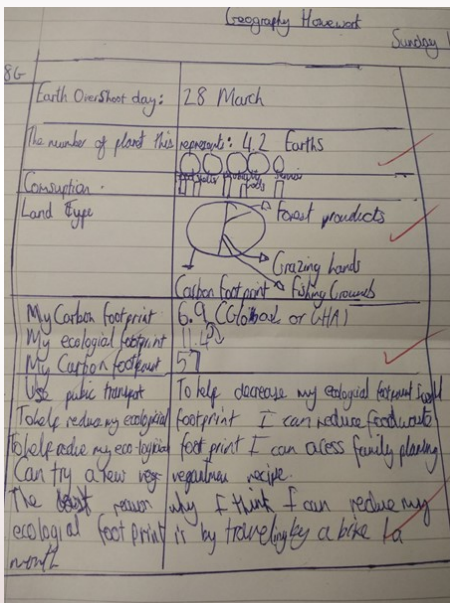 Geography Homework
Sunday
8G
Earth OverShoot day: 28 March
The number of plant this represents: 4.2 Earths
Comsuption.
Land Type
Forest prouducts
Grazing lands
Carbon footprint
Fishing Grounds
My Carbon footprint 6.9 (Global or GHA)
My ecological footprint 11.4
My Carbon footprint 57
Use pubic transport To help decrease my ecological footprint I could
To help reduce my ecological footprint I can reduce food waste
To help redue my eco-logical foot print I can acess family planing
Can try a new veg recipe.
The reason why I think I can reduce my
ecologial foot print is by traveling by a bike
month